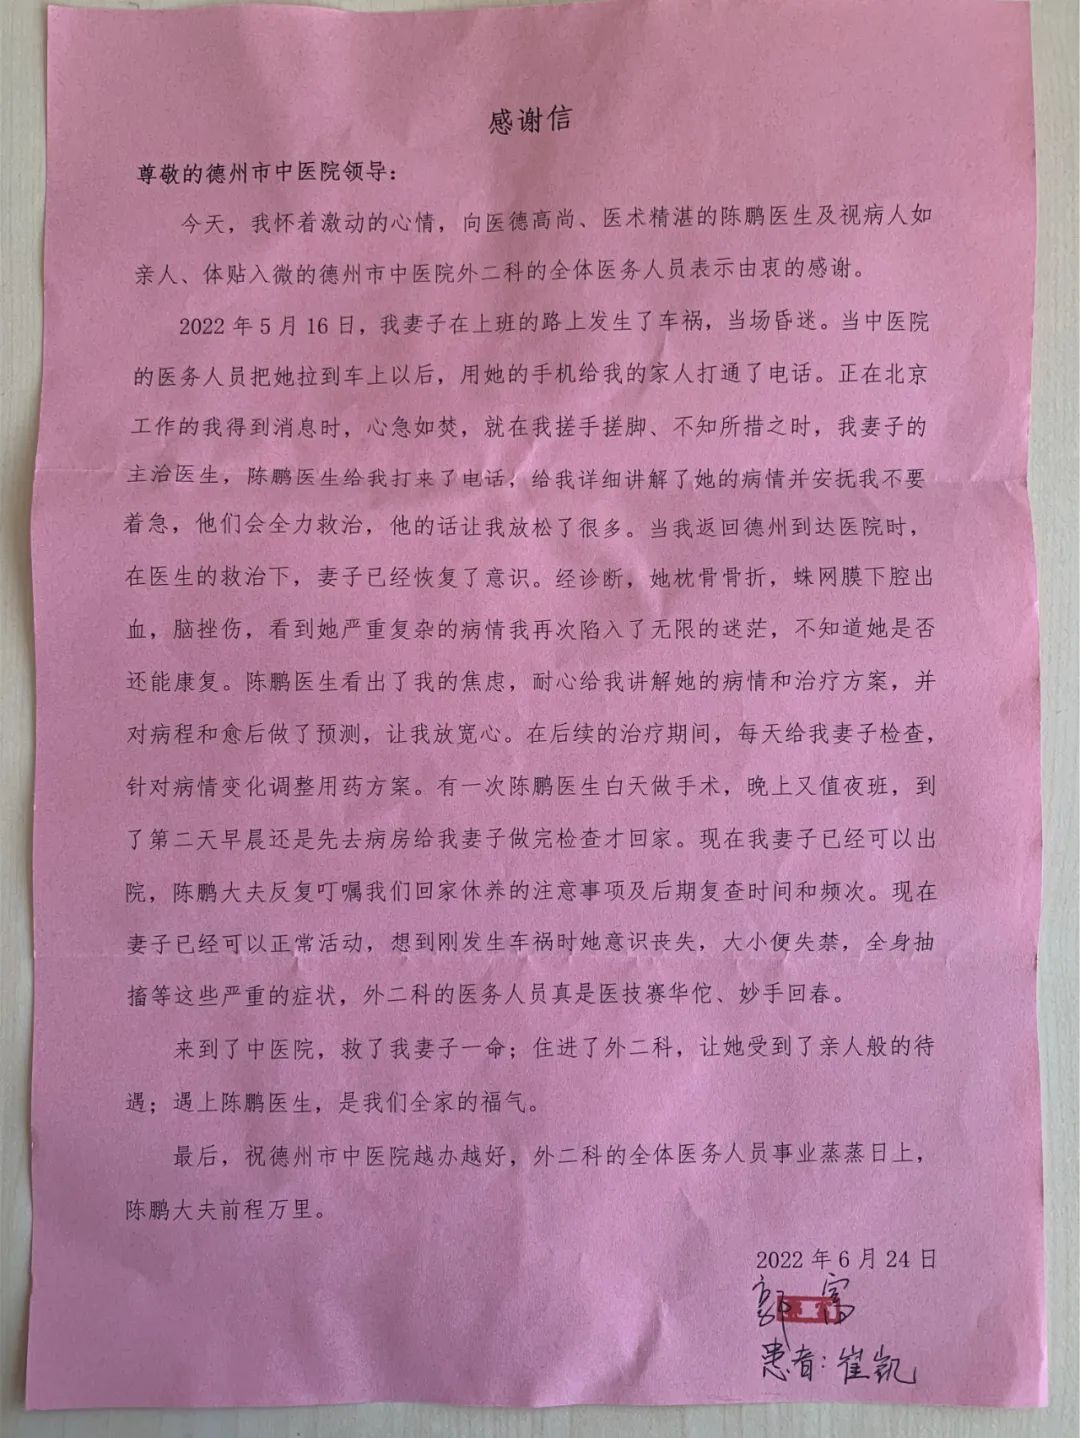 感谢信
尊敬的德州市中医院领导：
今天，我怀着激动的心情，向医德高尚、医术精湛的陈鹏医生及视病人如
亲人、体贴入微的德州市中医院外二科的全体医务人员表示由衷的感谢。
2022年5月16日，我妻子在上班的路上发生了车祸，当场昏迷。当中医院
的医务人员把她拉到车上以后，用她的手机给我的家人打通了电话。正在北京
工作的我得到消息时，心急如焚，就在我搓手搓脚、不知所措之时，我妻子的
主治医生，陈鹏医生给我打来了电话，给我详细讲解了她的病情并安抚我不要
着急，他们会全力救治，他的话让我放松了很多。当我返回德州到达医院时，
在医生的救治下，妻子已经恢复了意识。经诊断，她枕骨骨折，蛛网膜下腔出
血，脑挫伤，看到她严重复杂的病情我再次陷入了无限的迷茫，不知道她是否
还能康复。陈鹏医生看出了我的焦虑，耐心给我讲解她的病情和治疗方案，并
对病程和愈后做了预测，让我放宽心。在后续的治疗期间，每天给我妻子检查，
针对病情变化调整用药方案。有一次陈鹏医生白天做手术，晚上又值夜班，到
了第二天早晨还是先去病房给我妻子做完检查才回家。现在我妻子已经可以出
院，陈鹏大夫反复叮嘱我们回家休养的注意事项及后期复查时间和频次。现在
妻子已经可以正常活动，想到刚发生车祸时她意识丧失，大小便失禁，全身抽
搐等这些严重的症状，外二科的医务人员真是医技赛华佗、妙手回春。
来到了中医院，救了我妻子一命；住进了外二科，让她受到了亲人般的待
遇；遇上陈鹏医生，是我们全家的福气。
最后，祝德州市中医院越办越好，外二科的全体医务人员事业蒸蒸日上，
陈鹏大夫前程万里。
2022年6月24日
郭 富
患者：崔凯